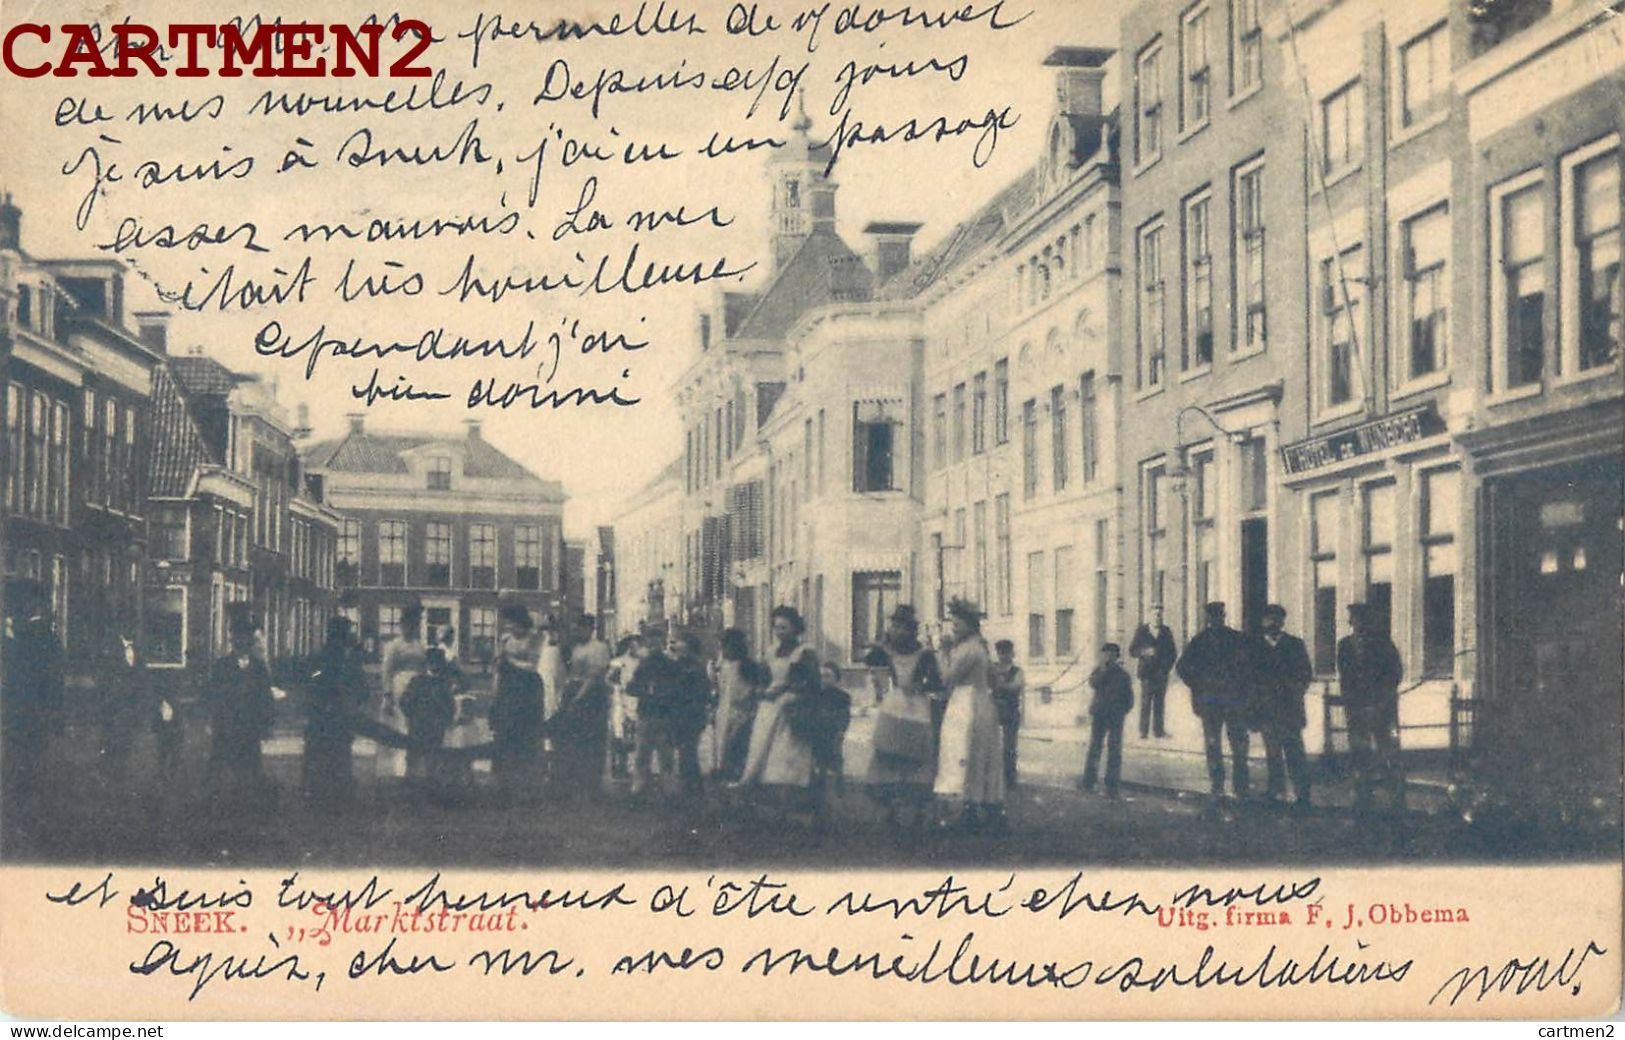 CARTMEN2
Cher Mr. Me permettez de v/ donner
de mes nouvelles. Depuis q/q jours
je suis à Sneek, j'ai eu un passage
assez mauvais. La mer
était très houilleuse.
cependant j'ai
bien dormi
HOTEL DE WIJNBERG
et suis tout heureux d'être rentré chez nous
SNEEK. „Marktstraat.”
Uitg. firma F. J. Obbema
Agréez, cher mr. mes meilleures salutations
delcampe.net
cartmen2